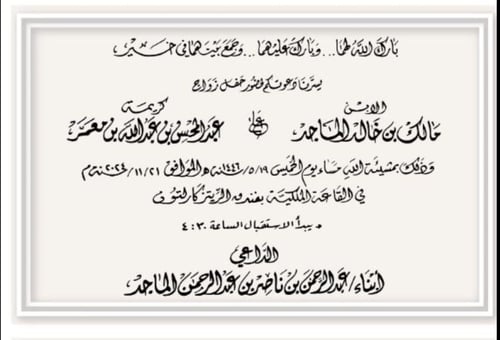 بارك الله لهما... وبارك عليهما... وجمع بينهما في خير
يسرنا دعوتكم لحضور حفل زواج
الابن
كريمة
مالك بن خالد الماجد
على
عبدالمحسن بن عبدالله بن معمر
وذلك بمشيئة الله مساء يوم الخميس ١٤٤٦/٥/١٩هـ الموافق ٢٠٢٤/١١/٢١م
في القاعة الملكية بفندق الريتز كارلتون
يبدأ الاستقبال الساعة ٤:٣٠
الداعي
أبناء/ عبدالرحمن بن ناصر بن عبدالرحمن الماجد